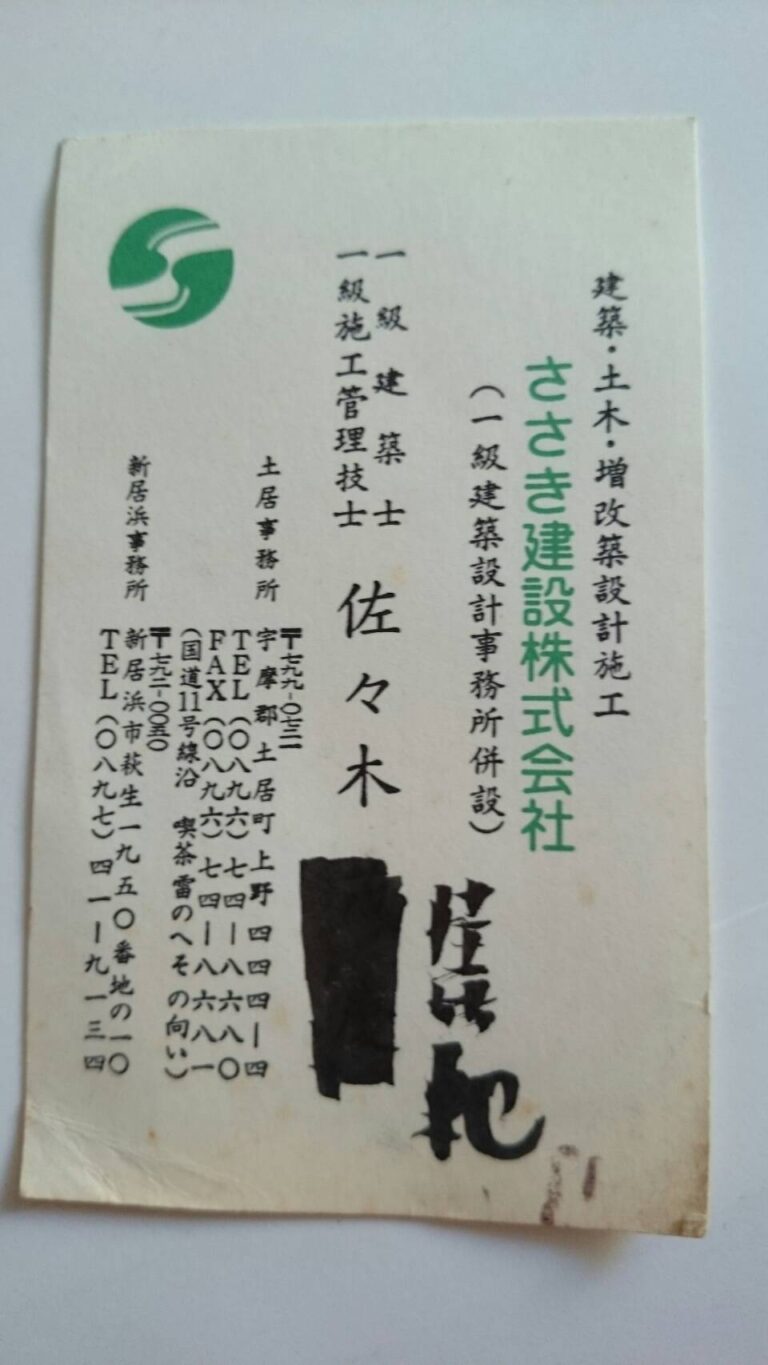 建築・土木・増改築設計施工
ささき建設株式会社
（一級建築設計事務所併設）
一級建築士
一級施工管理技士
佐々木
土居事務所
〒七九九-〇七一一
宇摩郡土居町上野四四四ー四
TEL（〇八九六）七四ー八六八〇
FAX（〇八九六）七四ー八六八一
（国道11号線沿 喫茶雷のへその向い）
新居浜事務所
〒七九二-〇〇五〇
新居浜市萩生一九五〇番地の一〇
TEL（〇八九七）四一ー九一三四